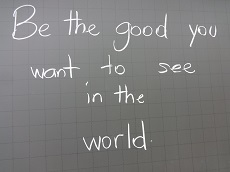 Be the good you
want to see
in the
world.